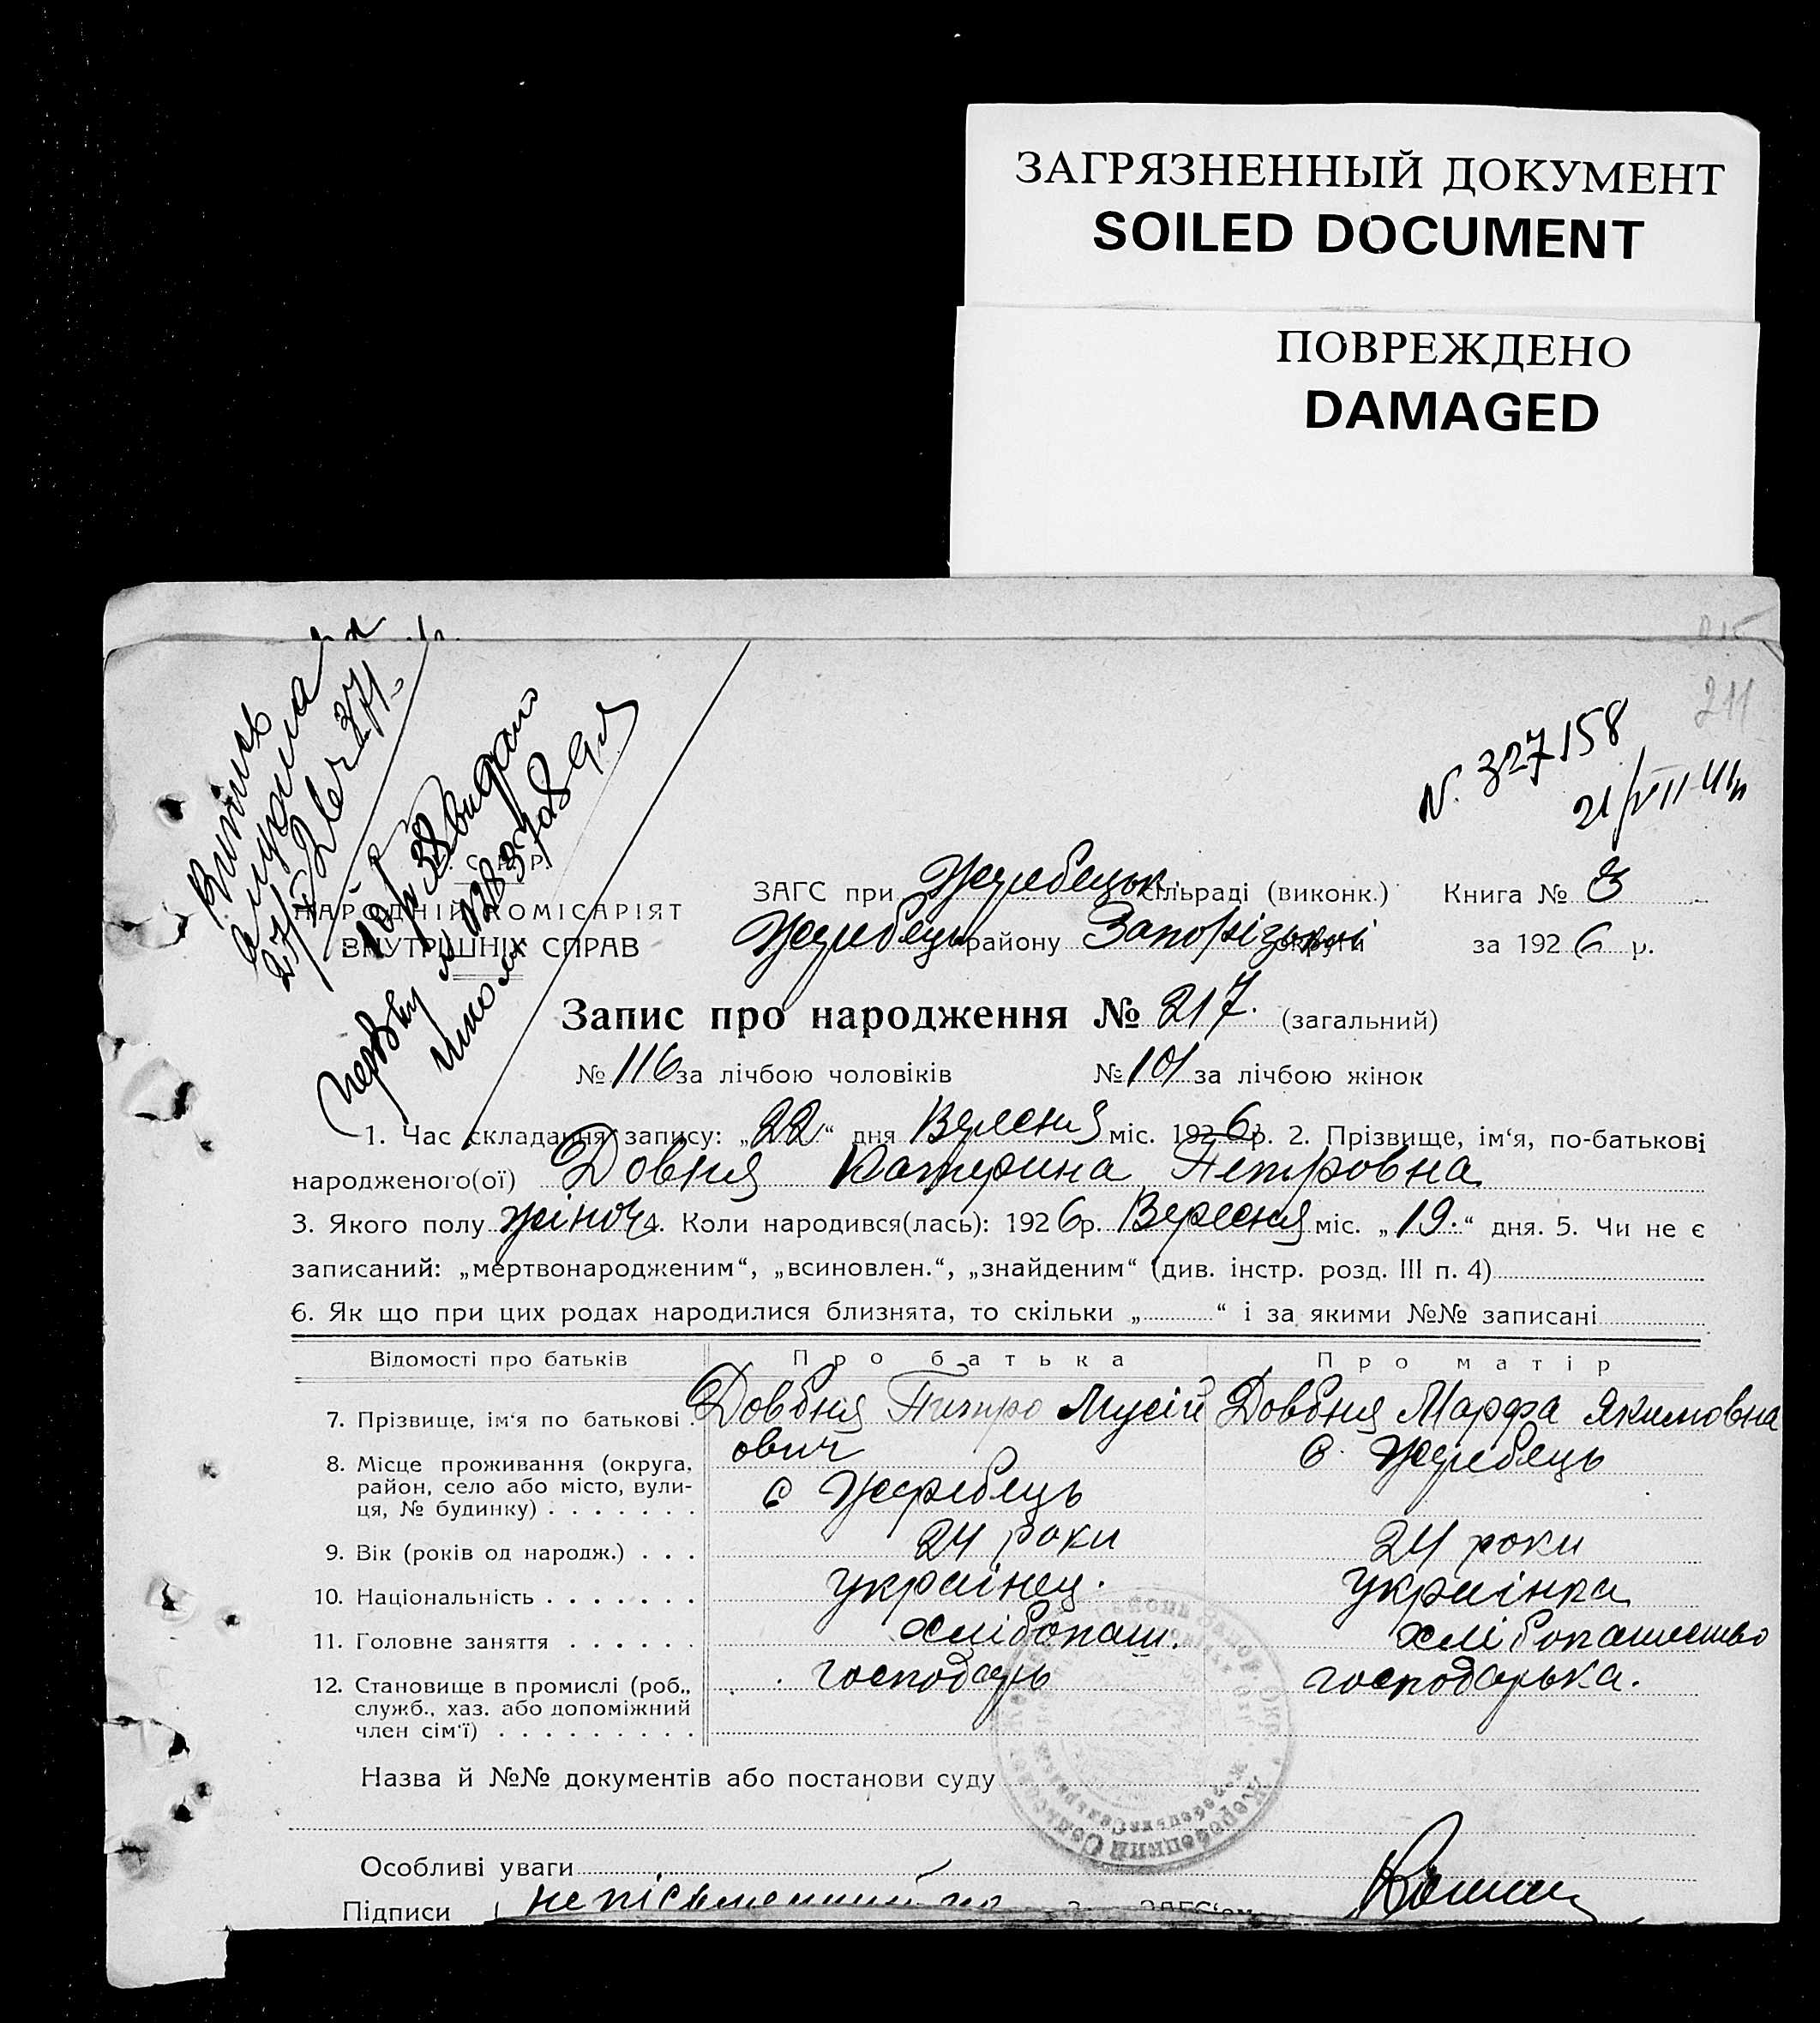 ЗАГРЯЗНЕННЫЙ ДОКУМЕНТ
SOILED DOCUMENT
ПОВРЕЖДЕНО
DAMAGED
211
N. 327158
21/VII-41р
Витяг
27/X
38 видано
ЗАГС при Жеребецьк. сільраді (виконк.) Книга № 3
НАРОДНІЙ КОМІСАРІЯТ
ВНУТРІШНІХ СПРАВ
Жеребецьк району Запорізької округи за 1926 р.
Запис про народження № 217. (загальний)
№ 116 за лічбою чоловіків № 101 за лічбою жінок
1. Час складання запису: „22“ дня Вересня міс. 1926 р. 2. Прізвище, ім‘я, по-батькові
народженого(ої) Довбня Катерина Петровна
3. Якого полу жіноч 4. Коли народився(лась): 1926 р. Вересня міс. „19.“ дня. 5. Чи не є
записаний: „мертвонародженим“, „всиновлен.“, „знайденим“ (див. інстр. розд. III п. 4)
6. Як що при цих родах народилися близнята, то скільки „ “ і за якими №№ записані
Відомості про батьків Про батька Про матір
7. Прізвище, ім‘я по батькові Довбня Питро Мусій Довбня Марфа Якимовна
ович
8. Місце проживання (округа, район, село або місто, вулиця, № будинку) с Жеребець с. Жеребець
9. Вік (років од народж.) 24 роки 24 роки
10. Національність українец. українка
11. Головне заняття хлібопаш. хлібопашество
12. Становище в промислі (роб., служб., хаз. або допоміжний член сім‘ї) господарь господарька.
Назва й №№ документів або постанови суду
Особливі уваги
Підписи неписьменний